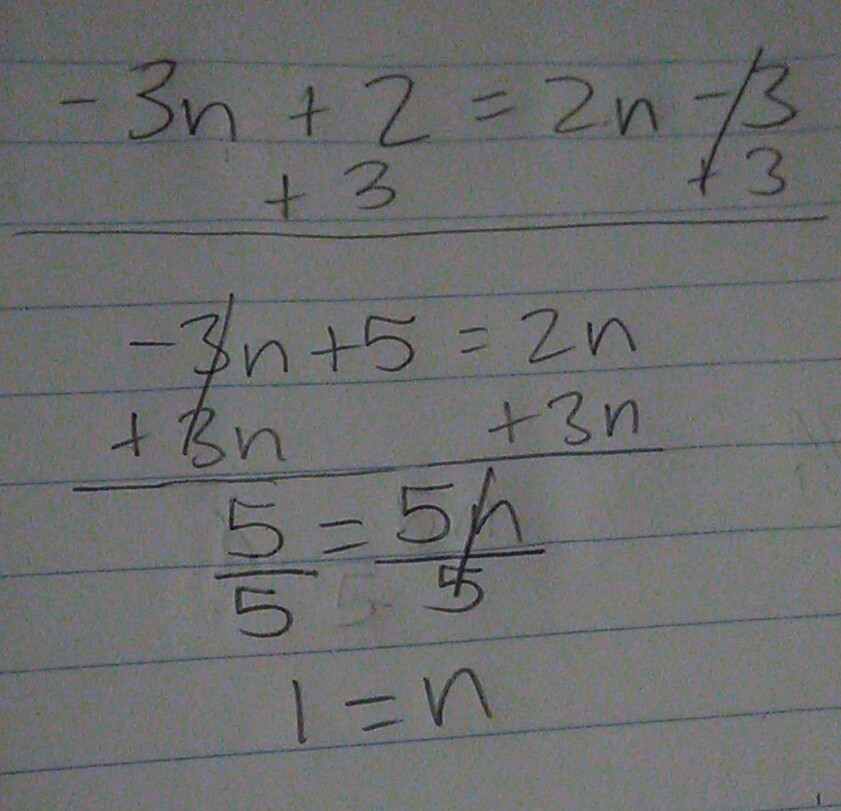 -3n + 2 = 2n - 3
+ 3 + 3
-3n + 5 = 2n
+ 3n + 3n
5 = 5n
5 5 5
1 = n